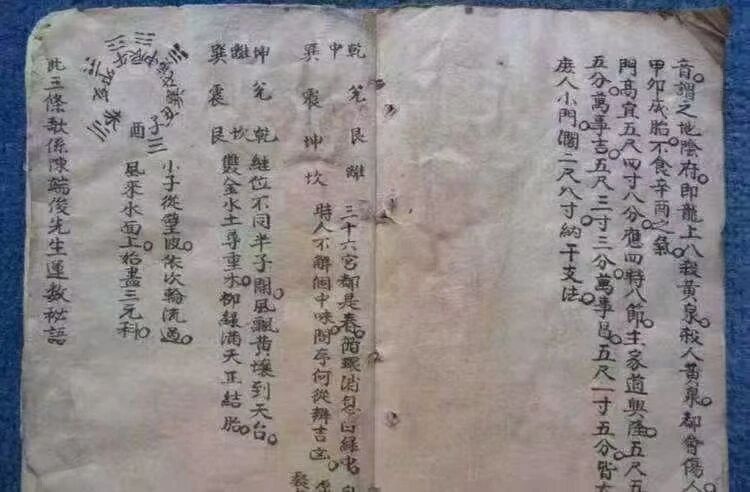 音謂之地陰府即龍上八殺黃泉殺人黃泉都會傷人
甲卯成胎不食辛酉之氣
門高宜五尺四寸八分應四時八節主家道興隆五尺五
五分萬事吉五尺三寸三分萬事昌五尺一寸五分皆
庶人小門濶二尺八寸納干支法
乾 兌 艮 離 三十六宮都是春循環消息
中
巽 震 坤 坎 時人不解個中味問存何從辨吉
坤 兌 乾 縫位不同半子關風飄黃壤到天台
離 坎
巽 震 艮 雙金水土尋重木柳綠滿天正結胎
小子從望波依次輪流過
子 酉 風來水面上始盡三元科
此三條歌係陳端俊先生運數祕語